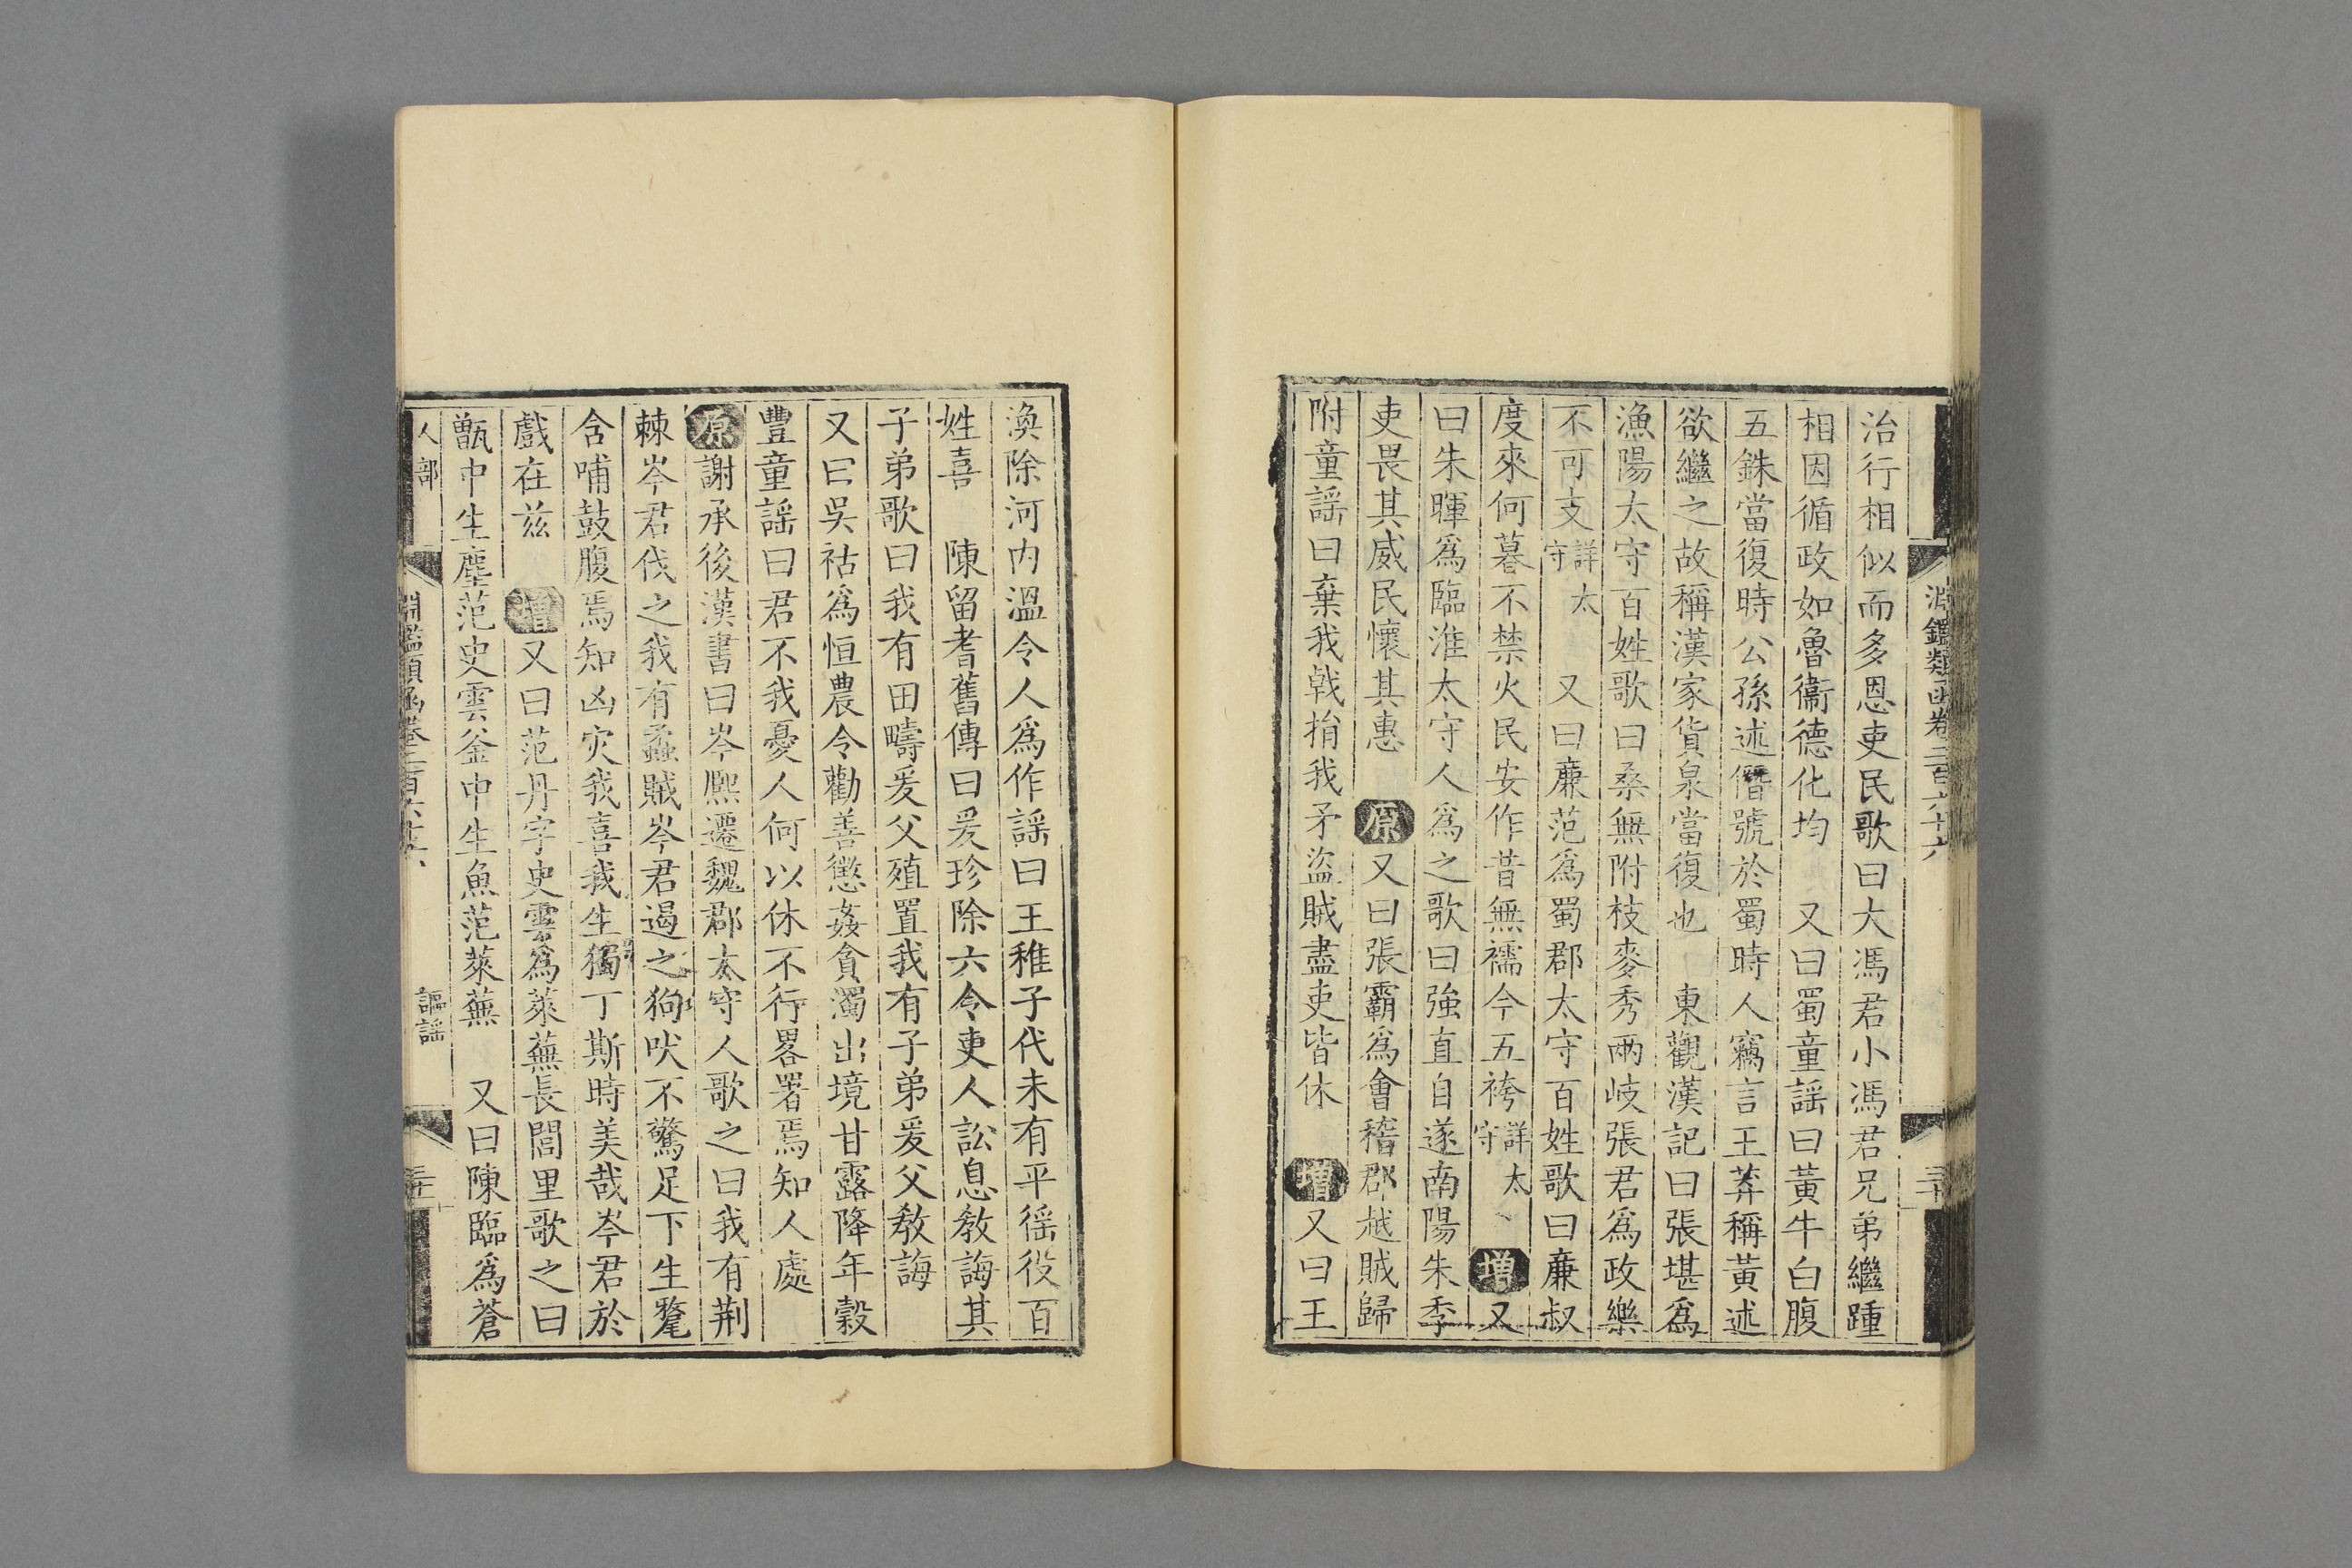 淵鑑類函卷二百六十六
三十
治行相似而多恩吏民歌曰大馮君小馮君兄弟繼踵
相因循政如魯衞德化均　又曰蜀童謡曰黃牛白腹
五銖當復時公孫述僭號於蜀時人竊言王莽稱黃述
欲繼之故稱漢家貨泉當復也　東觀漢記曰張堪爲
漁陽太守百姓歌曰桑無附枝麥秀兩岐張君爲政樂
不可支詳太守　又曰廉范爲蜀郡太守百姓歌曰廉叔
度來何暮不禁火民安作昔無襦今五袴詳太守　增又
曰朱暉爲臨淮太守人爲之歌曰強直自遂南陽朱季
吏畏其威民懷其惠　原又曰張霸爲會稽郡越賊歸
附童謡曰棄我戟捐我矛盜賊盡吏皆休　增又曰王
渙除河内溫令人爲作謡曰王稚子代未有平徭役百
姓喜　陳留耆舊傳曰爰珍除六令吏人訟息敎誨其
子弟歌曰我有田疇爰父殖置我有子弟爰父敎誨
又曰吳祜爲恒農令勸善懲姦貪濁出境甘露降年穀
豐童謡曰君不我憂人何以休不行畧署焉知人處
原謝承後漢書曰岑熈遷魏郡太守人歌之曰我有荆
棘岑君伐之我有蟊賊岑君遏之狗吠不驚足下生氂
含哺鼓腹焉知凶灾我喜我生獨丁斯時美哉岑君於
戲在兹　增又曰范丹字史雲爲萊蕪長閭里歌之曰
甑中生塵范史雲釜中生魚范萊蕪　又曰陳臨爲蒼
人部
淵鑑類函卷二百六十六
謳謡
三十